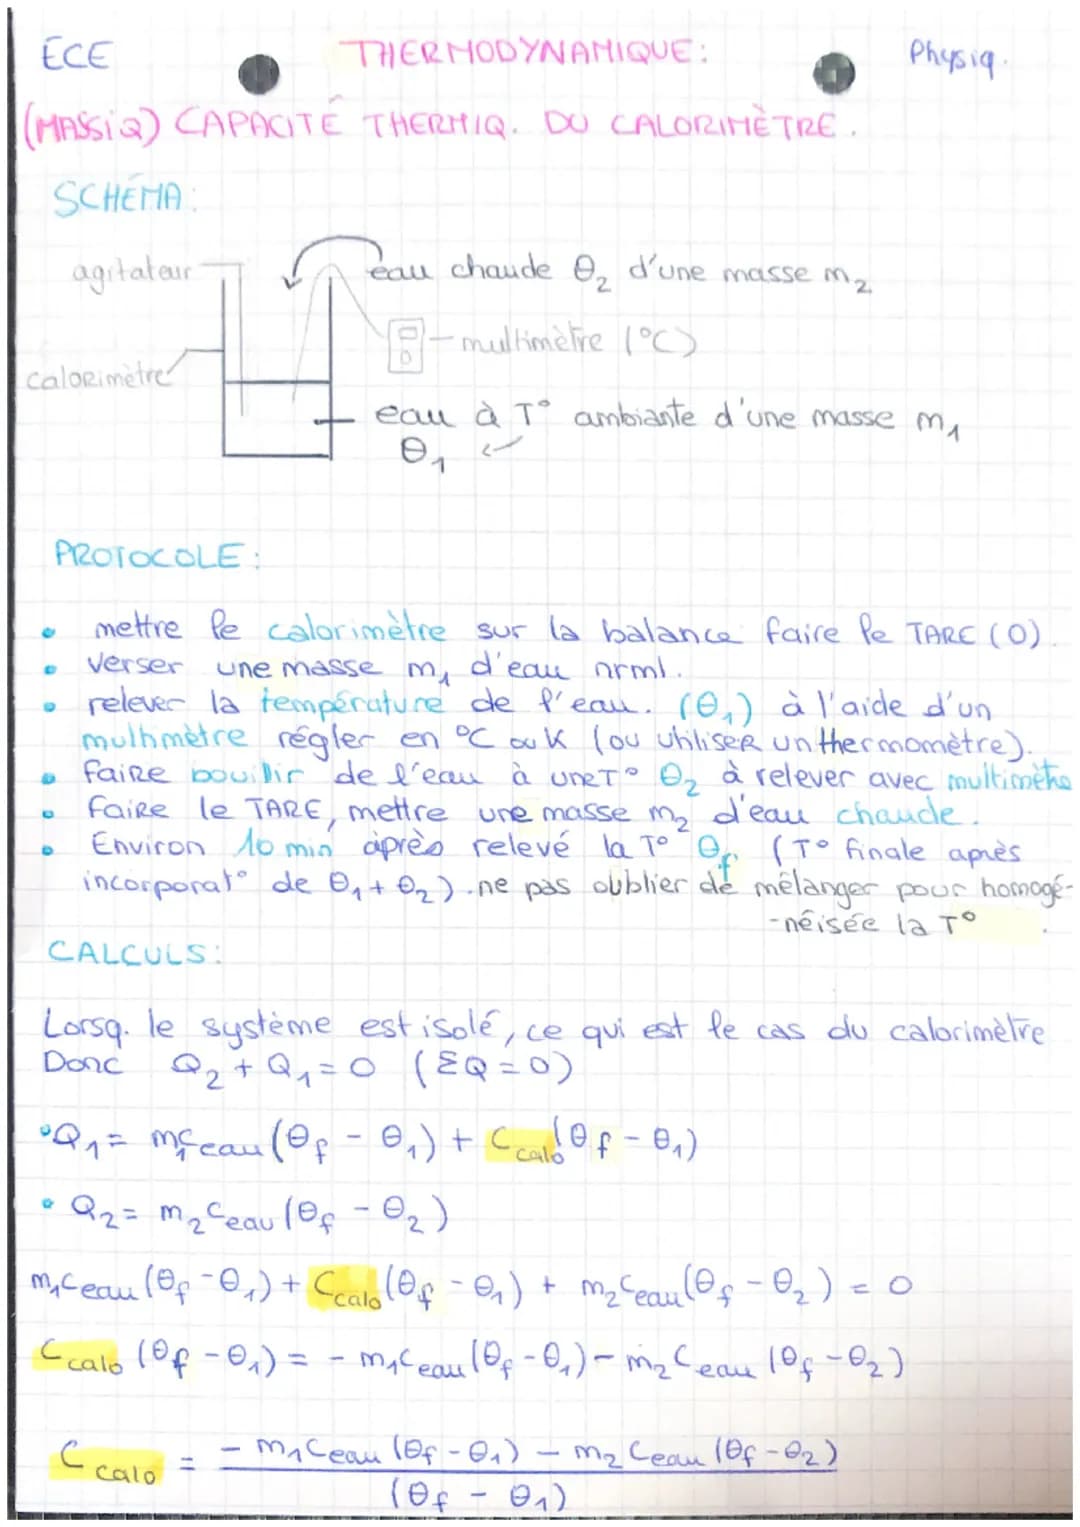 ECE THERMODYNAMIQUE: Physiq.
(MASSiQ) CAPACITÉ THERMIQ. DU CALORIMÈTRE.
SCHÉMA:
agitateur
eau chaude θ₂ d'une masse m₂
multimètre (°C)
calorimètre
eau à T° ambiante d'une masse m₁
θ₁
PROTOCOLE:
• mettre le calorimètre sur la balance faire le TARE (0).
• verser une masse m₁ d'eau nrml.
• relever la température de l'eau. (θ₁) à l'aide d'un
multimètre régler en °C ou K (ou utiliser un thermomètre).
• faire bouillir de l'eau à une T° θ₂ à relever avec multimètre
• faire le TARE, mettre une masse m₂ d'eau chaude.
• Environ 10 min après relevé la T° θf. (T° finale après
incorporat° de θ₁ + θ₂). ne pas oublier de mélanger pour homogé-
-néisée la T°
CALCULS:
Lorsq. le système est isolé, ce qui est le cas du calorimètre
Donc Q₂ + Q₁ = 0 (ΣQ = 0)
• Q₁ = m₁ceau (θf - θ₁) + Ccalo (θf - θ₁)
• Q₂ = m₂ceau (θf - θ₂)
m₁ceau (θf - θ₁) + Ccalo (θf - θ₁) + m₂ceau (θf - θ₂) = 0
Ccalo (θf - θ₁) = - m₁ceau (θf - θ₁) - m₂ceau (θf - θ₂)
Ccalo = - m₁ceau (θf - θ₁) - m₂ceau (θf - θ₂)
(θf - θ₁)